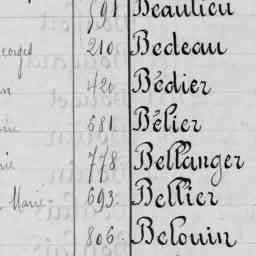 591 Beaulieu
eorges 210 Bedeau
420 Bédier
rie 581. Bélier
rie 778 Bellanger
Marie- 693. Bellier
806. Belouin